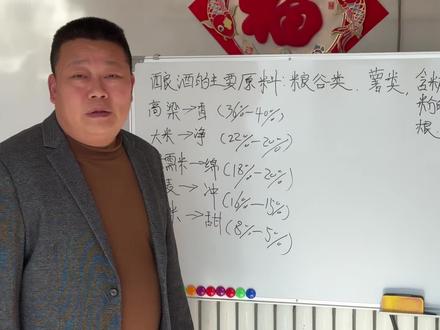 福
酿酒的主要原料:粮谷类、薯类,含粉
高梁→香(36%-40%)
大米→净(22%-20%)
糯米→绵(18%-20%)
麦→冲(16%-15%)
米→甜(8%-5%)